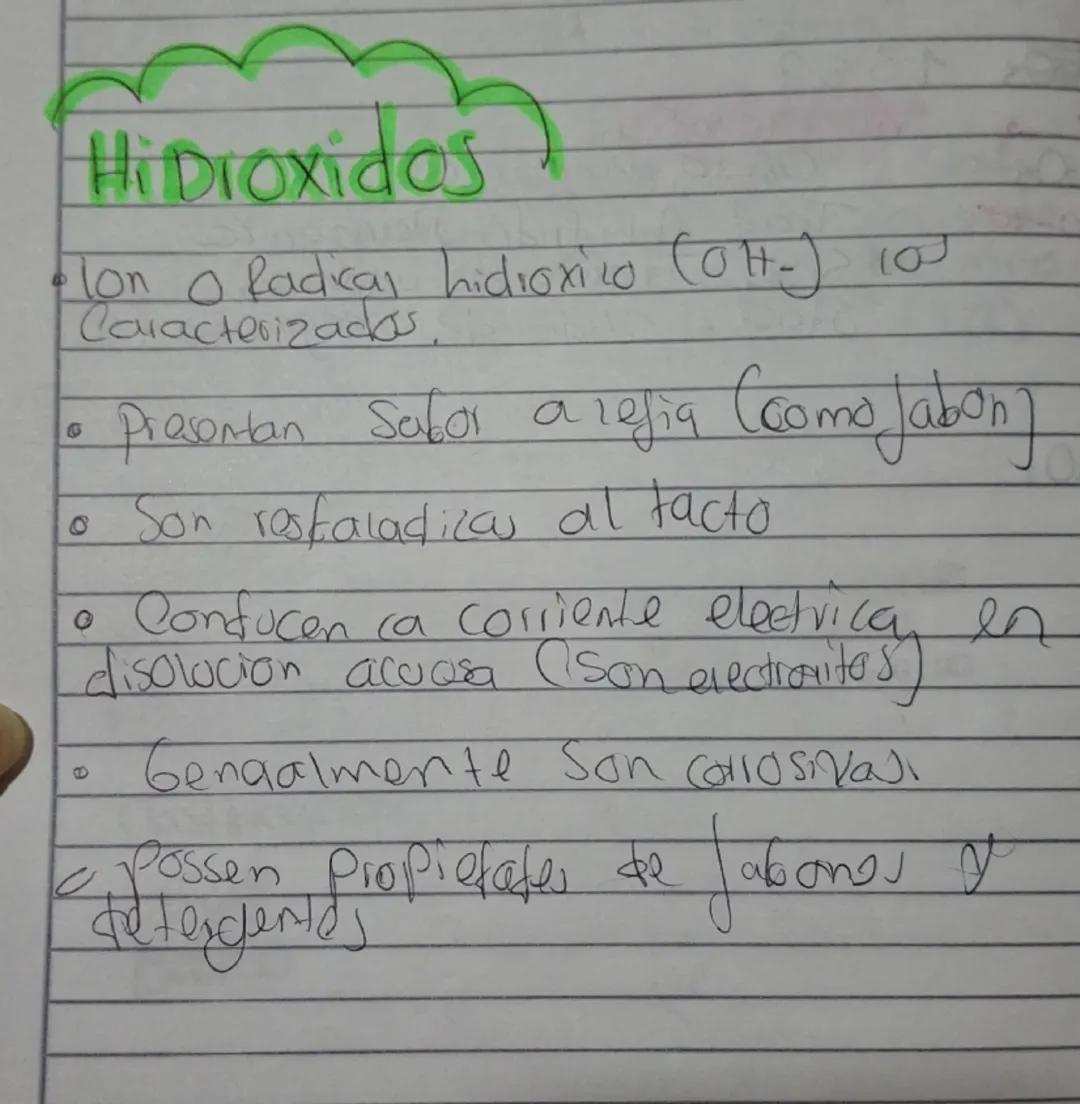 HiDroxidos
• Ion o Radical hidroxilo (OH-) los
Caracterizados.
• Presentan Sabor a lejia (como Jabon)
• Son resbaladizas al tacto
• Conducen la corriente electrica, en
disolucion acuosa (Son electrolitos)
• Generalmente Son corrosivas.
• Possen Propiedades de Jabones y
detergentes